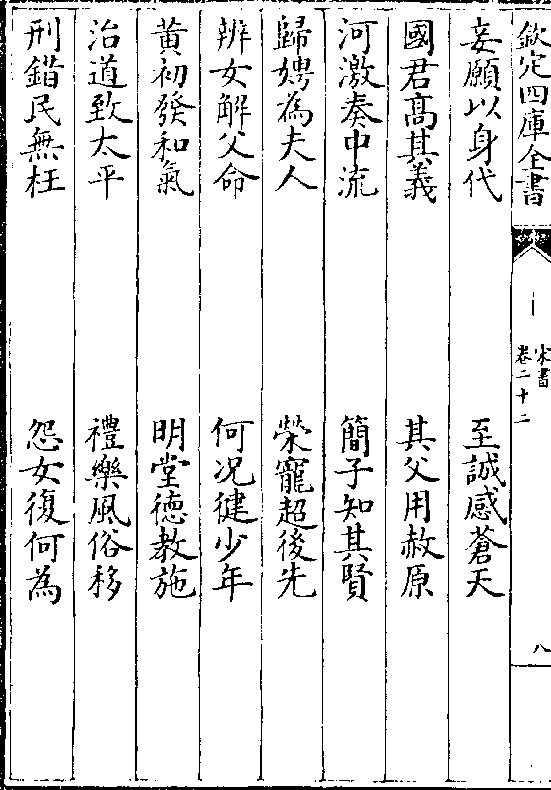 欽定四庫全書
宋書
卷二十二
八
妾願以身代　至誠感蒼天
國君髙其義　其父用赦原
河激奏中流　簡子知其賢
歸娉為夫人　榮寵超後先
辨女解父命　何况健少年
黄初發和氣　明堂徳教施
治道致太平　禮樂風俗移
刑錯民無枉　怨女復何為